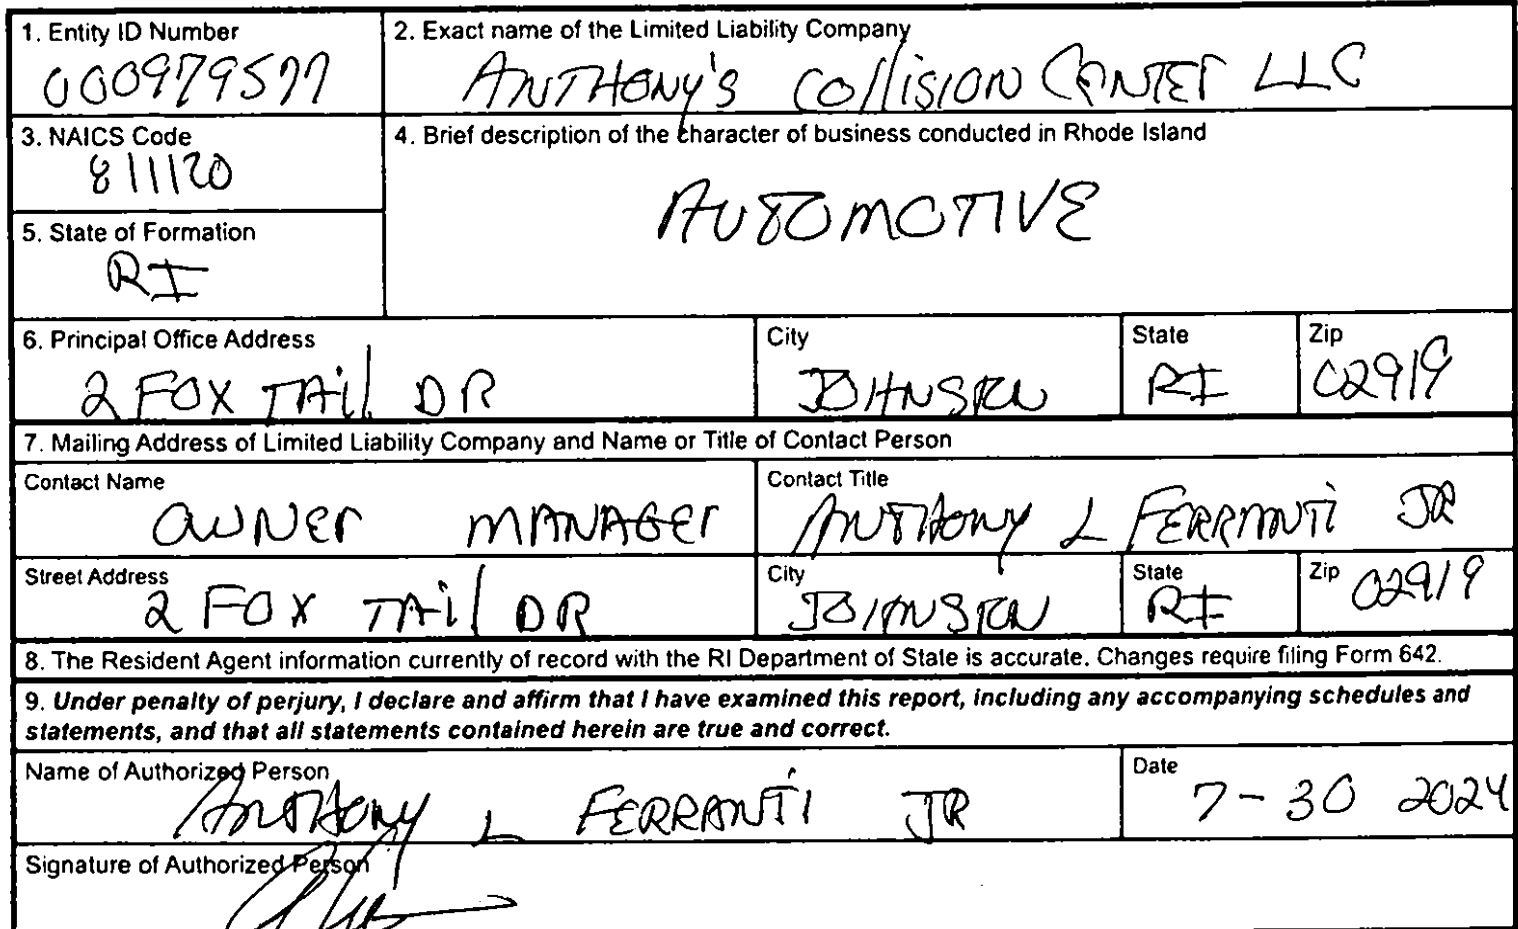 1. Entity ID Number
000979577
2. Exact name of the Limited Liability Company
ANTHONY'S COllISION CENTER LLC
3. NAICS Code
811120
4. Brief description of the character of business conducted in Rhode Island
AUTOMOTIVE
5. State of Formation
RI
6. Principal Office Address
2 FOX TAil DR
City
JOHNSTON
State
RI
Zip
02919
7. Mailing Address of Limited Liability Company and Name or Title of Contact Person
Contact Name
OWNEr MANAGEr
Contact Title
ANTHONY L FERRANTi JR
Street Address
2 FOX TAil DR
City
JOHNSTON
State
RI
Zip
02919
8. The Resident Agent information currently of record with the RI Department of State is accurate. Changes require filing Form 642.
9. Under penalty of perjury, I declare and affirm that I have examined this report, including any accompanying schedules and
statements, and that all statements contained herein are true and correct.
Name of Authorized Person
ANTHONY L FERRANTI JR
Date
7-30 2024
Signature of Authorized Person